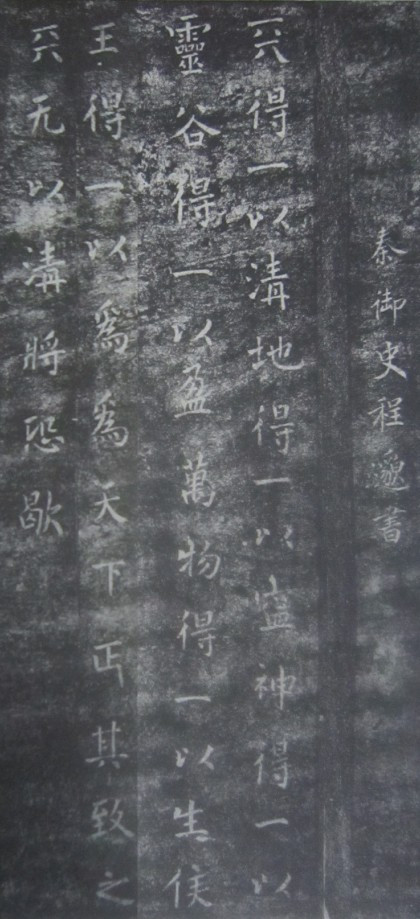 秦御史程邈書
天得一以清地得一以寍神得一以
靈谷得一以盈萬物得一以生侯
王得一以爲爲天下正其致之
天无以清將恐歇